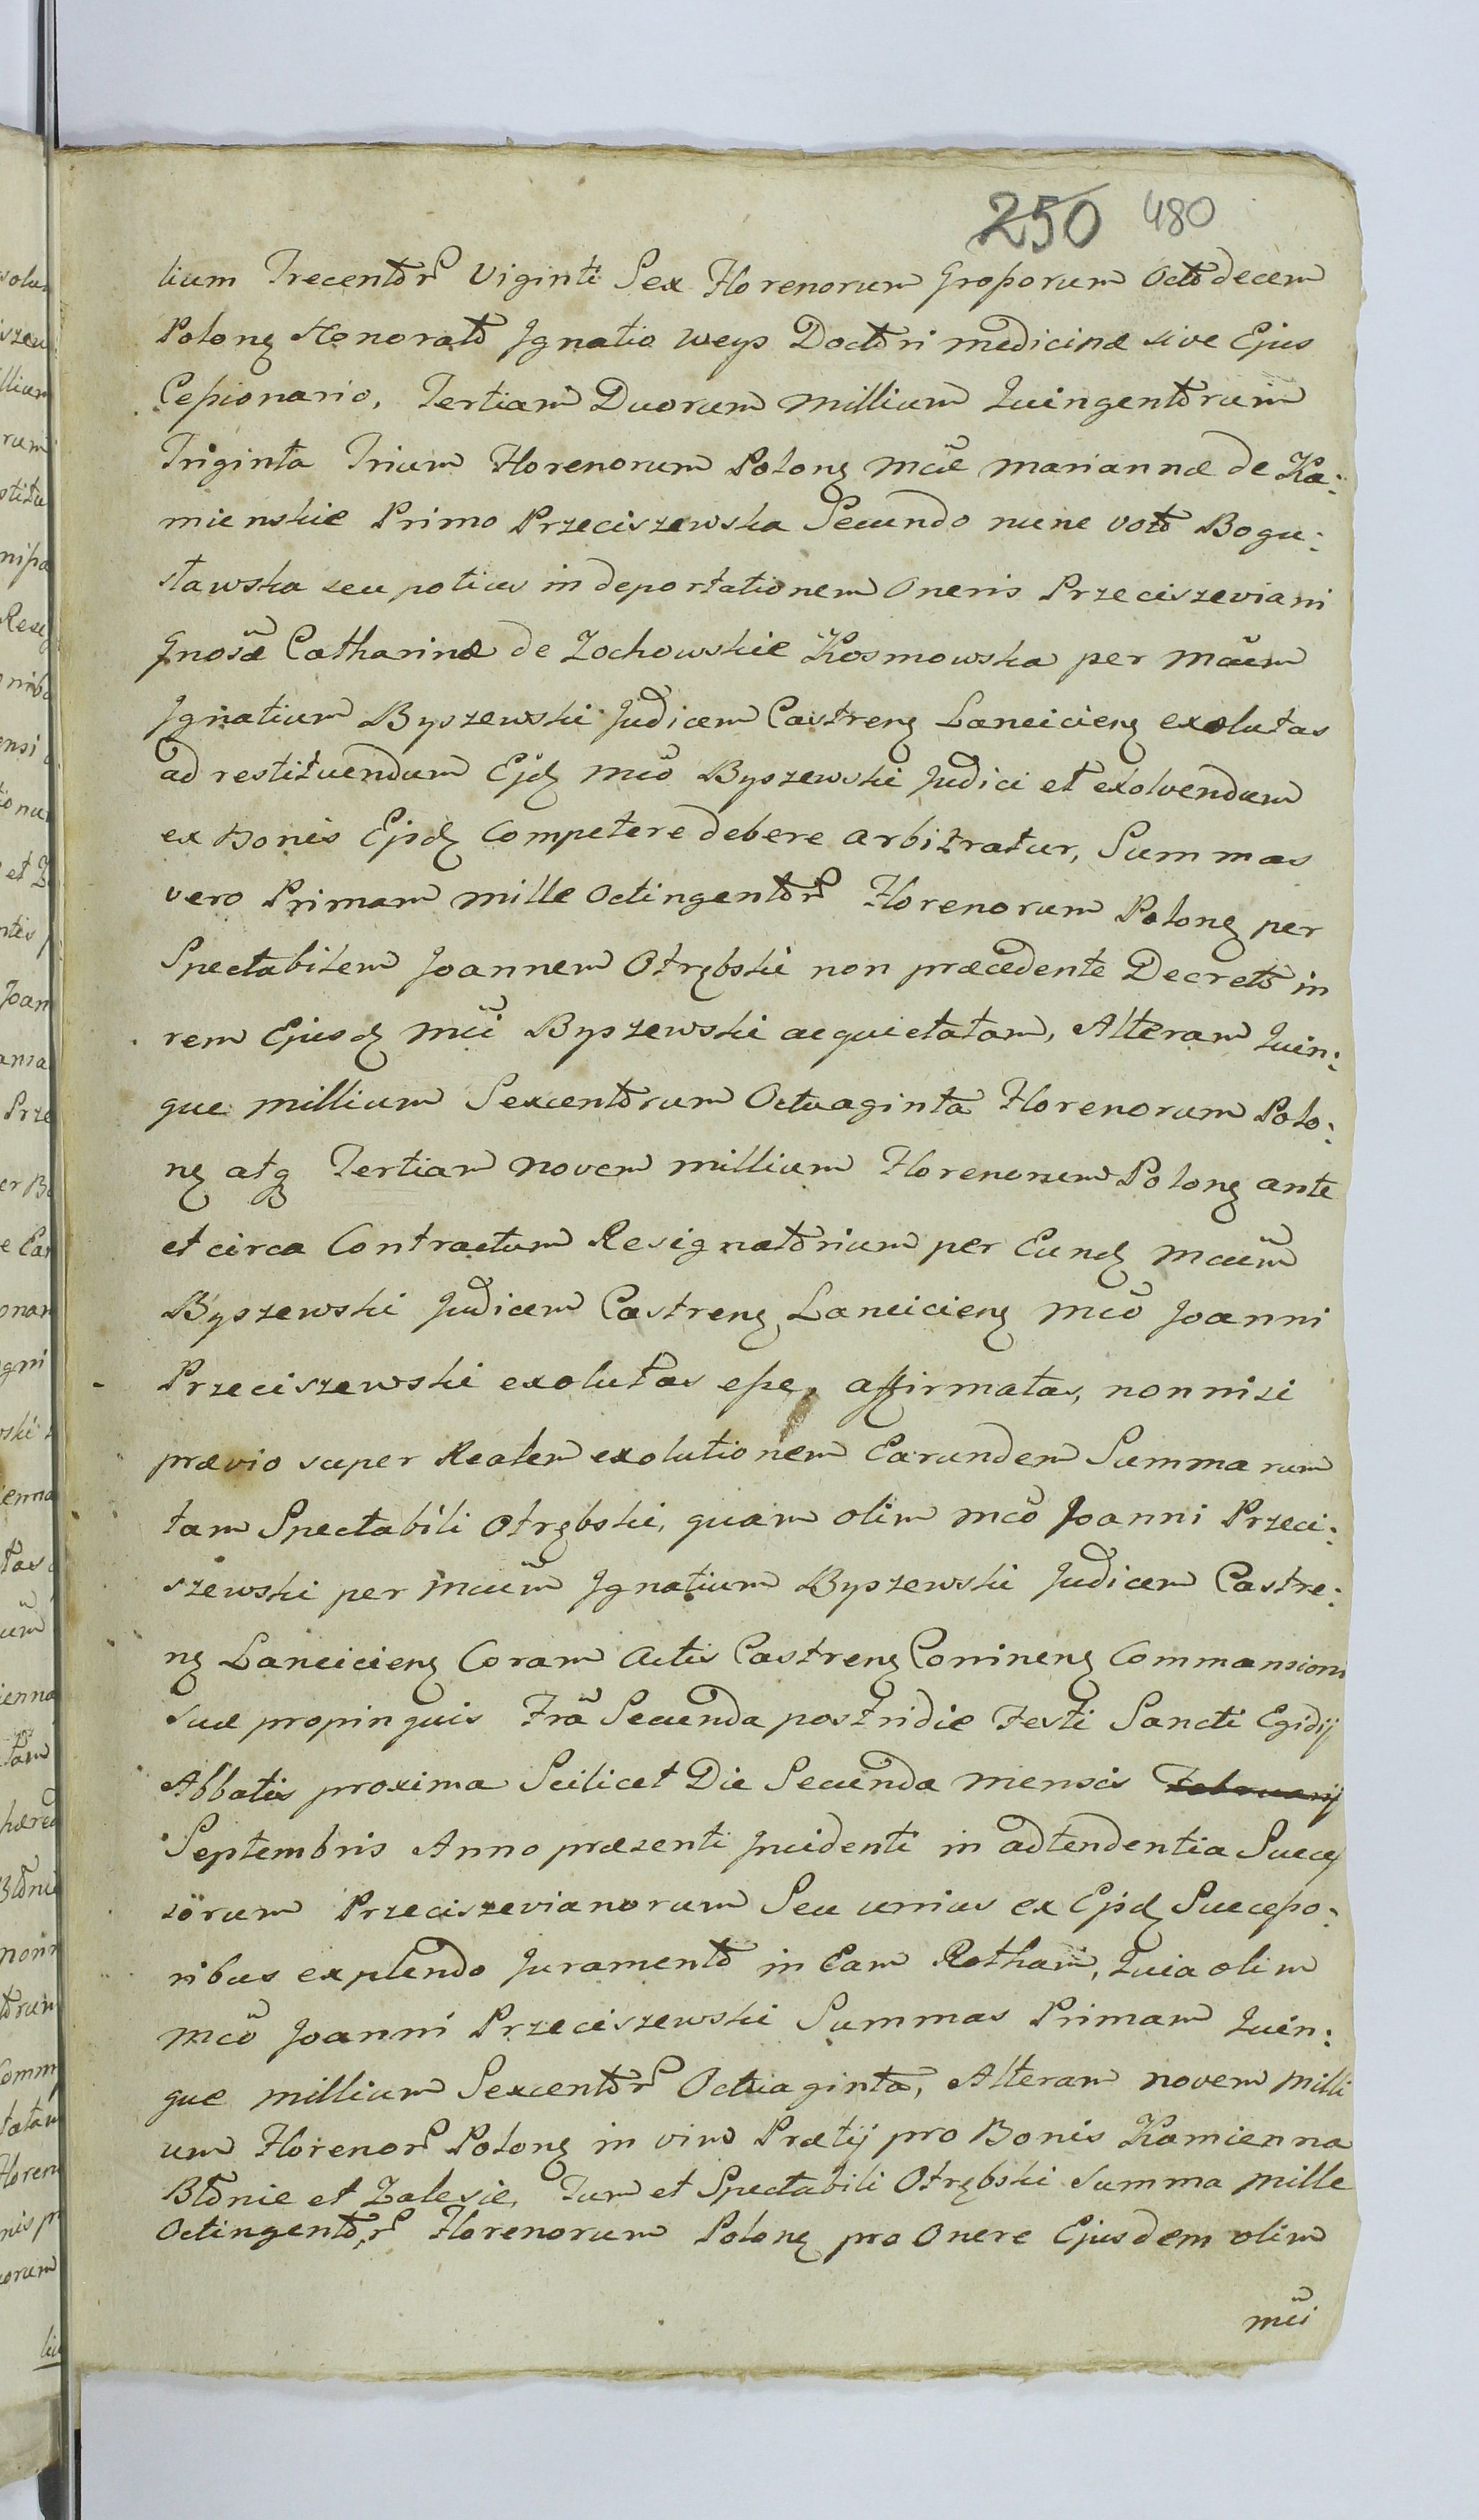 250 480
lium Trecentor͞ Viginti Sex Florenorum Grossorum Octodecem
Polonꝫ Honorato Ignatio Weys Doctori medicinæ sive Ejus
Cessionario, Tertiam Duorum millium Quingentorum
Triginta Trium Florenorum Polonꝫ Mcæ Mariannæ de Ka:
mienskie Primo Przeciszewska Secundo nunc voto Bogu:
sławska seu potius in deportationem Oneris Przeciszeviani
Gnosæ Catharinæ de Zochowskie Kosmowska per Mcum
Ignatium Byszewski Judicem Castrenꝫ Lancicienꝫ exolutas
ad restituendum Ejdꝫ Mco Byszewski Judici et exolvendum
ex Bonis Ejsdꝫ Competere debere arbitratur, Summas
vero Primam mille Octingentor͞ Florenorum Polonꝫ per
Spectabilem Joannem Otrębski non præcedente Decreto in
rem Ejusdꝫ Mci Byszewski acquietatam, Alteram Quin:
que millium Sexcentorum Octuaginta Florenorum Polo:
nꝫ atqꝫ Tertiam novem millium Florenorum Polonꝫ ante
et circa Contractum Resignatorium per Eundꝫ Mcum
Byszewski Judicem Castrenꝫ Lancicienꝫ Mco Joanni
Przeciszewski exolutas esse, affirmatas, nonnisi
prævio super Realem exolutionem Earundem Summarum
tam Spectabili Otrębski, quam olim Mco Joanni Przeci:
szewski per Mcum Ignatium Byszewski Judicem Castre:
nꝫ Lancicienꝫ Coram Actis Castrenꝫ Coninenꝫ Commansioni
suæ propinquis Fria Secunda postridie Festi Sancti Egidij
Abbatis proxima Scilicet Die Secunda mensis Februarij
Septembris Anno præsenti Incidenti in adtendentia Succes
sorum Przeciszevianorum Seu unius ex Ejsdꝫ Successo:
ribus explendo Juramento in Eam Rotham, Quia olim
Mco Joanni Przeciszewski Summas Primam Quin:
que millium Sexcentor͞ Octuaginta, Alteram novem milli
um Florenor͞ Polonꝫ in vim Prætij pro Bonis Kamienna
Błonie et Zalesie, Tum et Spectabili Otrębski Summa mille
Octingentor͞ Florenorum Polonꝫ pro Onere Ejusdem olim
Mci